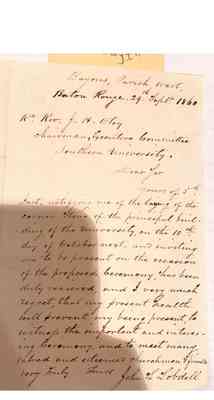 Bayou, Parish West,
Baton Rouge, 29th Septr 1860
Rt Rev. J. H. Otey
Chairman, Executive Committee
Southern University.
Dear Sir
Yours of 5th
inst, notifying me of the laying of the
corner Stone of the principal buil-
ding of the University, on the 10th
day of October next, and inviting
me to be present on the occasion
of the proposed Ceremony has been
duly received, and I very much
regret, that my present Health
will prevent my being present to
witness the important and interes-
ing Ceremony, and to meet many
valued and esteemed churchmen & friends
Very Truly Yours
John L Lobdell